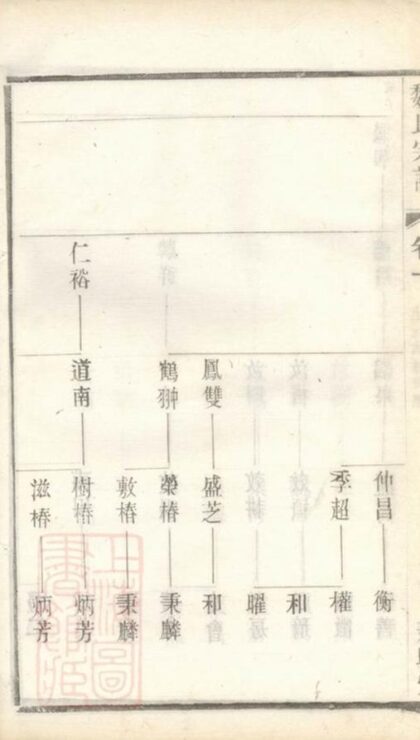 仲昌 衡
季超 權
和
曜
鳳雙 盛芝 和
鶴翀 榮椿 秉麟
敷椿 秉麟
仁裕 道南 樹椿 炳芳
滋椿 炳芳